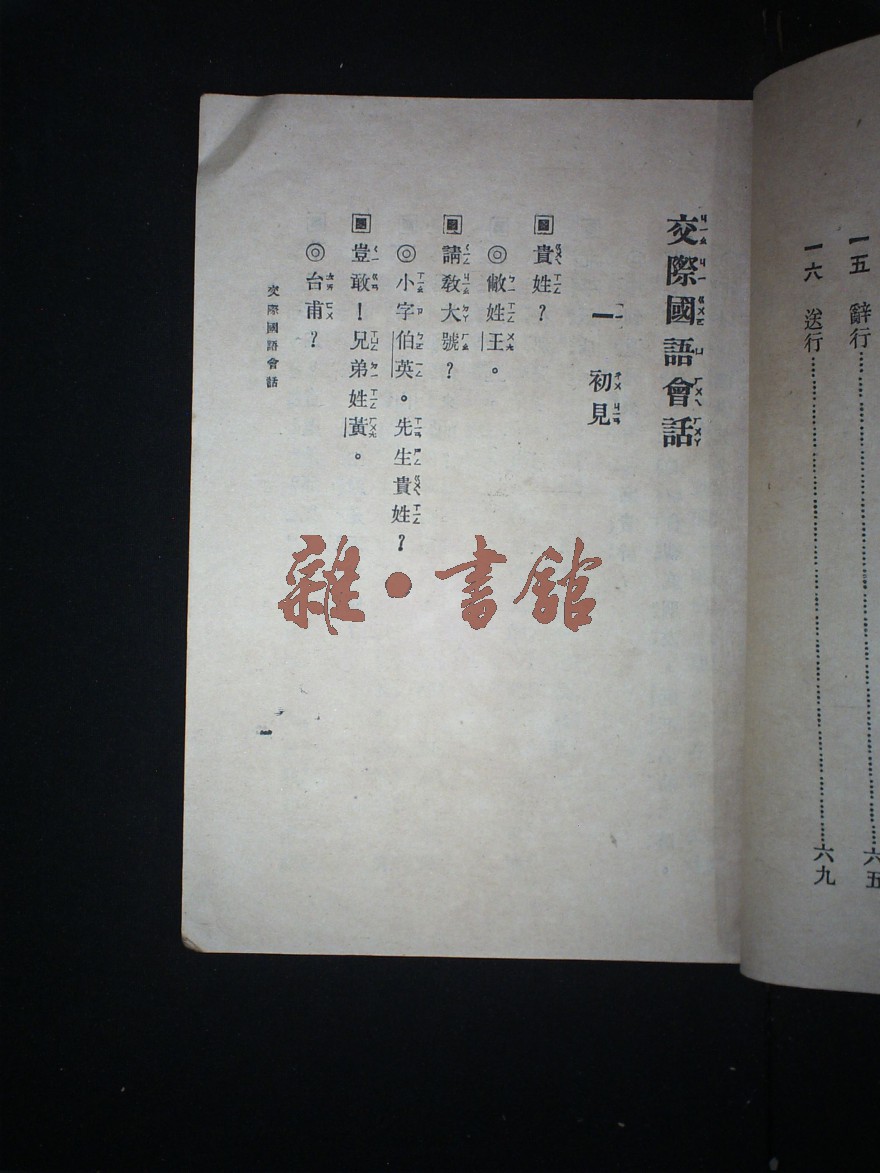 一五 辭行……………………六五
一六 送行……………………六九
交際國語會話
一 初見
▣貴姓？
◎敝姓王。
▣請教大號？
◎小字伯英。先生貴姓？
▣豈敢！兄弟姓黃。
◎台甫？
交際國語會話
一
雜•書館